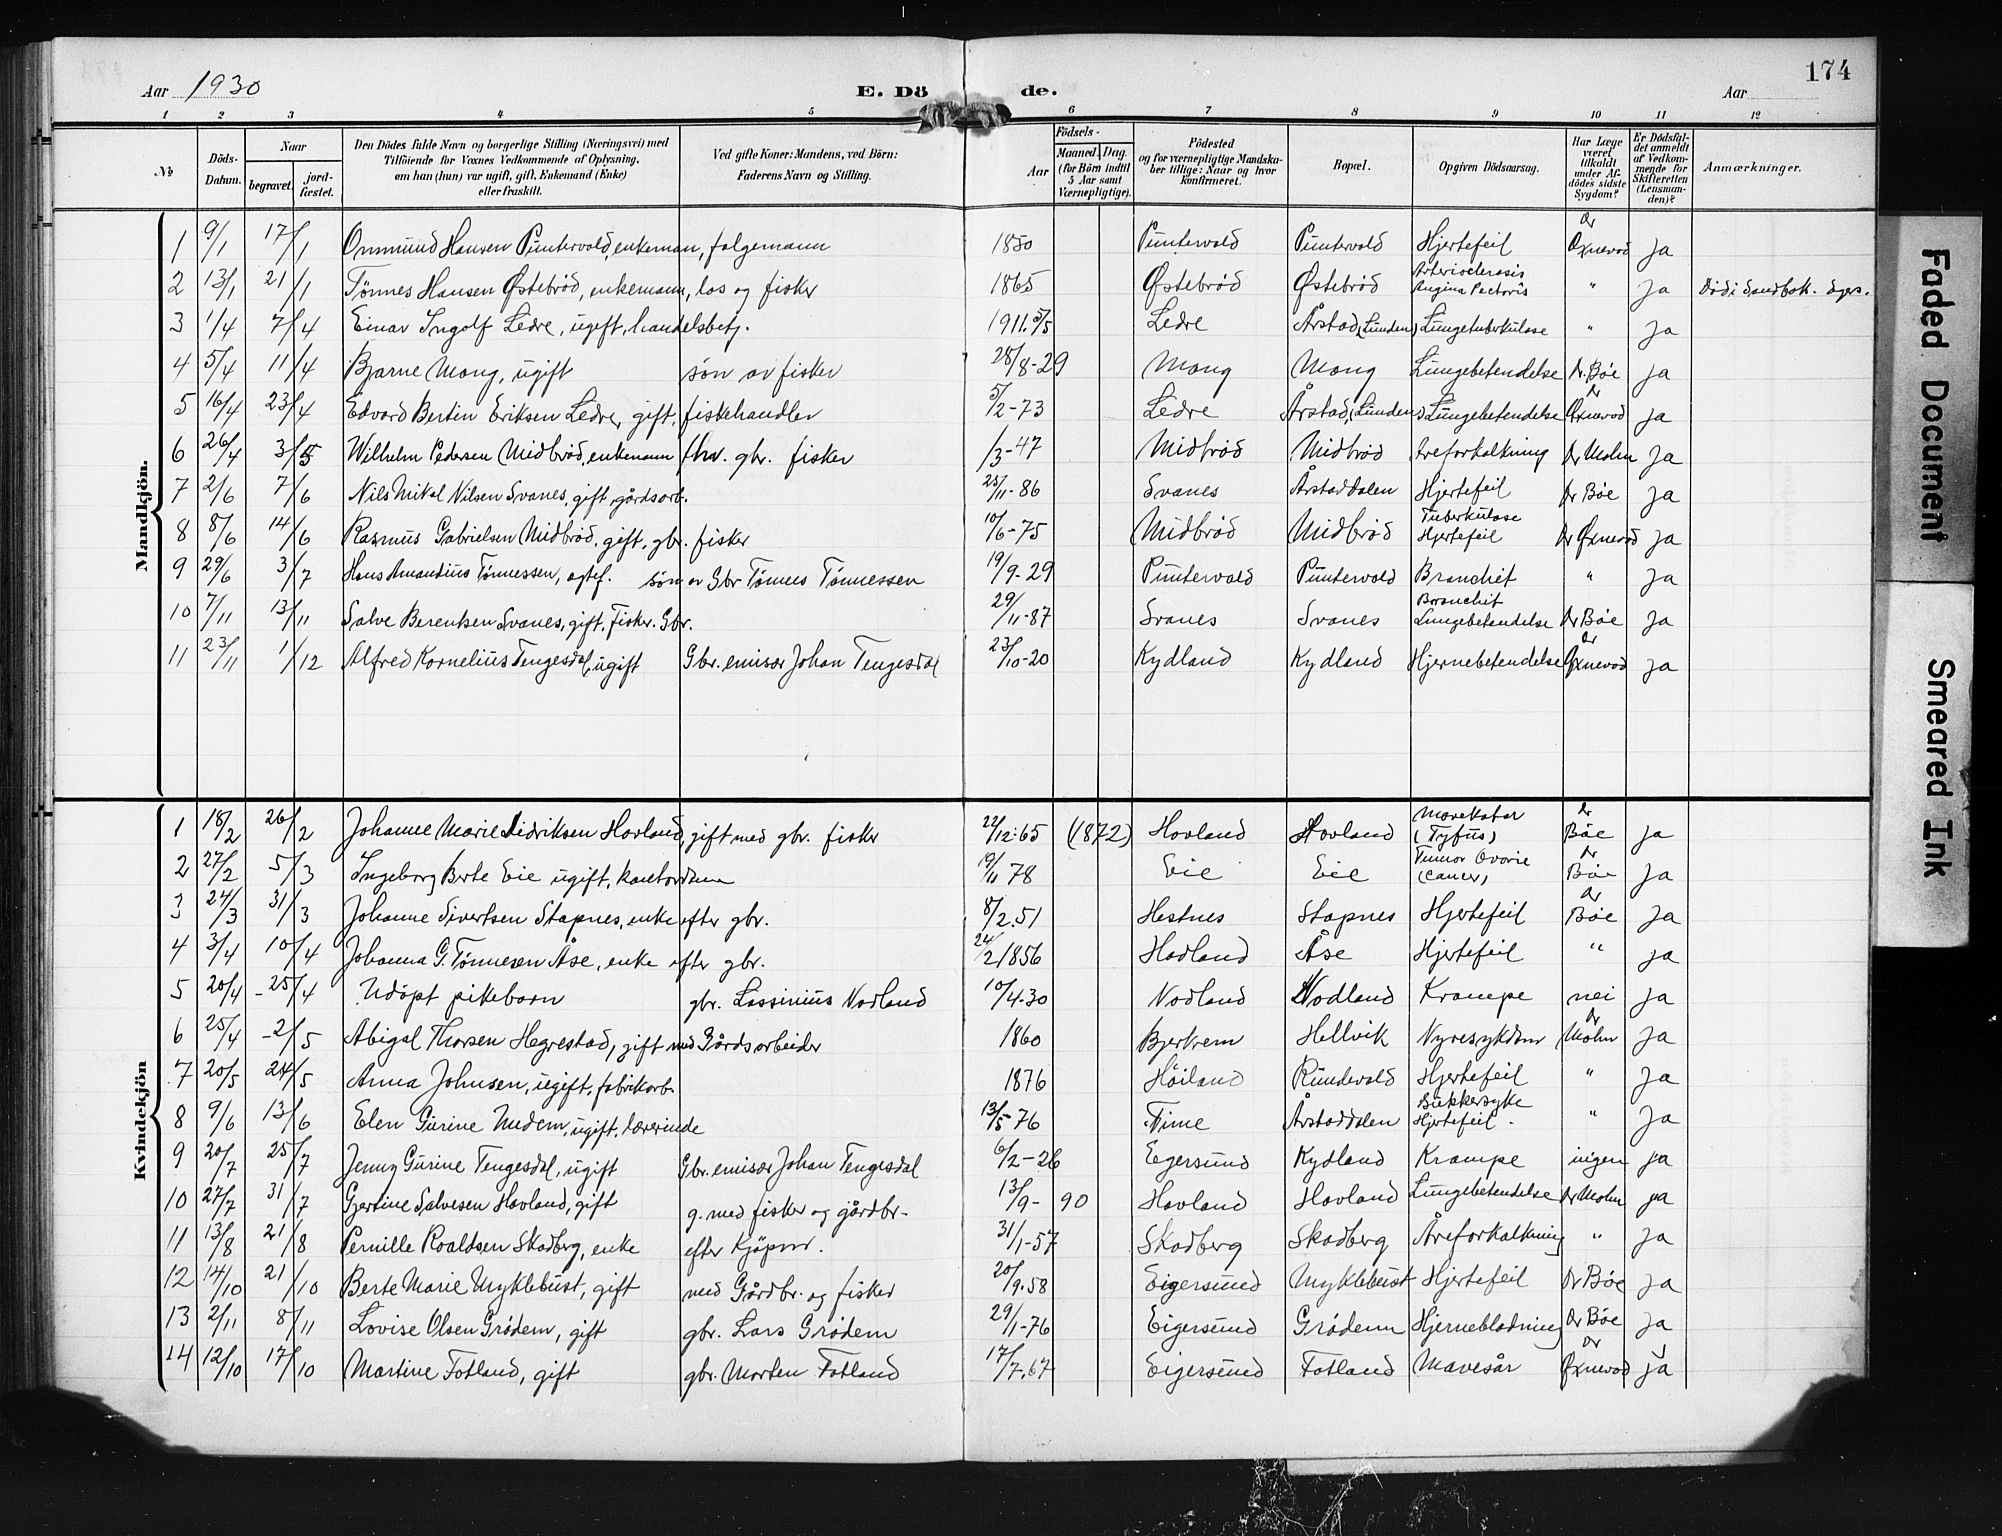 174
Aar 1930 E. Dö de. Aar
1 2 3 4 5 6 7 8 9 10 11 12
№
Döds-Datum.
Naar
begravet.
jord-fæstet.
Den Dödes fulde Navn og borgerlige Stilling (Næringsvei) med
Tilföiende for Voxnes Vedkommende af Oplysning,
om han (hun) var ugift, gift, Enkemand (Enke)
eller fraskilt.
Ved gifte Koner: Mandens, ved Börn:
Faderens Navn og Stilling.
Födsels-
Aar
Maaned. Dag.
(for Börn indtil
5 Aar samt
Værnepligtige).
Födested
og for værnepligtige Mandska-
ber tillige: Naar og hvor
konfirmeret.
Bopæl.
Opgiven Dödsaarsag.
Har Læge
været
tilkaldt
under Af-
dödes sidste
Sygdom?
Er Dödsfal-
det anmeldt
af Vedkom-
mende for
Skifteretten
(Lensman-
den)?
Anmærkninger.
Mandkjön.
1 9/1 17/1 Ommund Hansen Puntervold, enkeman, folgemann 1850 Puntervold Puntervold Hjertefeil Dr Øxnevad Ja
2 13/1 21/1 Tønnes Hansen Østebrød, enkemann, los og fisker 1865 Østebrød Østebrød Arterioclerosis Angina Pectoris " Ja Död i Sandbok. Egers.
3 1/4 7/4 Einar Ingolf Ledre, ugift, handelsbetj. 1911 5/5 Ledre Årstad (Lunden) Lungetuberkulose " Ja
4 5/4 11/4 Bjarne Mong, ugift søn av fisker 28/8-29 Mong Mong Lungebetendelse Dr. Bøe Ja
5 16/4 23/4 Edvard Bertin Eriksen Ledre, gift, fiskehandler 5/2-73 Ledre Årstad (Lunden) Lungebetendelse Dr Øxnevad Ja
6 26/4 3/5 Wilhelm Pedersen Midbrød, enkemann fhv. gbr. fisker /3-47 Midbrød Midbrød Areforkalkning Dr Mohn Ja
7 2/6 7/6 Nils Mikal Nilsen Svanes, gift, gårdsarb. 25/11-86 Svanes Årstaddalen Hjertefeil Dr Bøe Ja
8 8/6 14/6 Rasmus Gabrielsen Midbrød, gift, gbr. fisker 10/6-75 Midbrød Midbrød Tuberkulose Hjertefeil Dr Øxnevad Ja
9 29/6 3/7 Hans Amandius Tønnessen, ugtef. søn av Gbr Tønnes Tønnessen 19/9-29 Puntervold Puntervold Bronchit " Ja
10 7/11 13/11 Salve Berentsen Svanes, gift, Fisker. Gbr. 29/11-87 Svanes Svanes Bronchit Lungebetendelse Dr Bøe Ja
11 23/11 1/12 Alfred Kornelius Tengesdal, ugift Gbr. emisær Johan Tengesdal 23/10-20 Kydland Kydland Hjernebetendelse Dr Øxnevad Ja
Kvindekjön
1 18/2 26/2 Johanne Marie Didriksen Hovland, gift med gbr. fisker 22/12-65 (1872) Hovland Hovland Mavekatar (Tyfus) Dr Bøe Ja
2 27/2 5/3 Ingeborg Berte Eie ugift, kontordame 19/11 78 Eie Eie Tumor Ovarie (cancer) Dr Bøe Ja
3 24/3 31/3 Johanne Sivertsen Stapnes, enke efter gbr. 8/2.51 Hestnes Stapnes Hjertefeil Dr Bøe Ja
4 3/4 10/4 Johanna G. Tønnesen Åse, enke efter gbr. 24/2 1856 Hadland Åse Hjertefeil " Ja
5 20/4 -25/4 Udøpt pikebarn gbr. Lassinius Nodland 10/4.30 Nodland Nodland Krampe nei Ja
6 25/4 -2/5 Abigal Thorsen Hegrestad, gift med Gårdsarbeider 1860 Bjerkrem Hellvik Nyresykdom Dr Mohn Ja
7 20/5 24/5 Anna Johnsen, ugift, fabrikarb. 1876 Höiland Rundevold Hjertefeil " Ja
8 9/6 13/6 Elen Gurine Undem, ugift, lærerinde 13/5-76 Time Årstaddalen Sukkersyke Hjertefeil. " Ja
9 20/7 25/7 Jenny Gurine Tengesdal, ugift Gbr. emisær Johan Tengesdal 6/2-26 Egersund Kydland Krampe ingen ja
10 27/7 31/7 Gjertine Salvesen Hovland, gift g. med fisker og gårdbr. 13/9-90 Hovland Hovland Lungebetendelse Dr Mohn ja
11 13/8 21/8 Pernille Roaldsen Skadberg, enke efter Kjøpm. 31/1-57 Skadberg Skadberg Åreforkalkning " Ja
12 14/10 21/10 Berte Marie Myklebust, gift med Gårdbr. og fisker 20/9.58 Eigersund Myklebust Hjertefeil Dr Bøe Ja
13 2/11 8/11 Lovise Olsen Grødem, gift gbr. Lars Grødem 29/1-76 Eigersund Grødem Hjerneblødning Dr Bøe Ja
14 12/10 17/10 Martine Fotland, gift gbr. Morten Fotland 17/7.67 Eigersund Fotland Mavesår Dr Øxnevad Ja
Faded Document
Smeared Ink